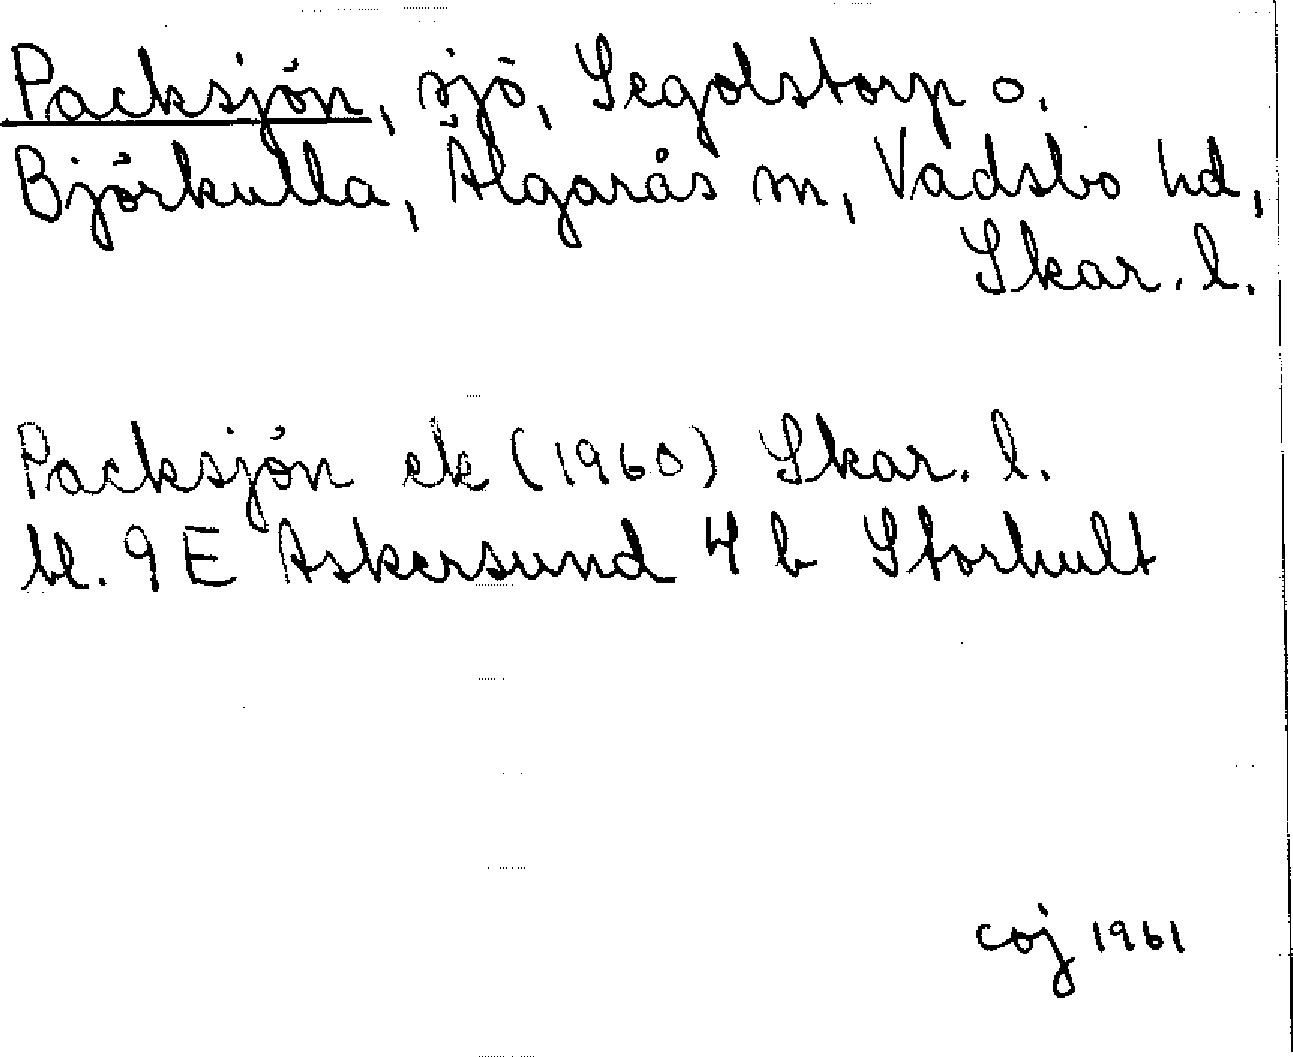 Packsjön, sjö, Segolstorp o.
Björkulla, Älgarås sn, Vadsbo hd,
Skar. l.
Packsjön ek (1960) Skar. l.
bl. 9E Askersund 4 b Storhult
coj 1961